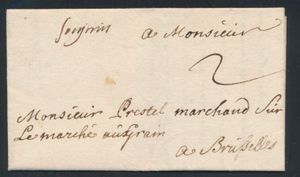 a Monsieur
2
Monsieur Prestel marchand Sur
Le marché aux Grain
a Brusselles